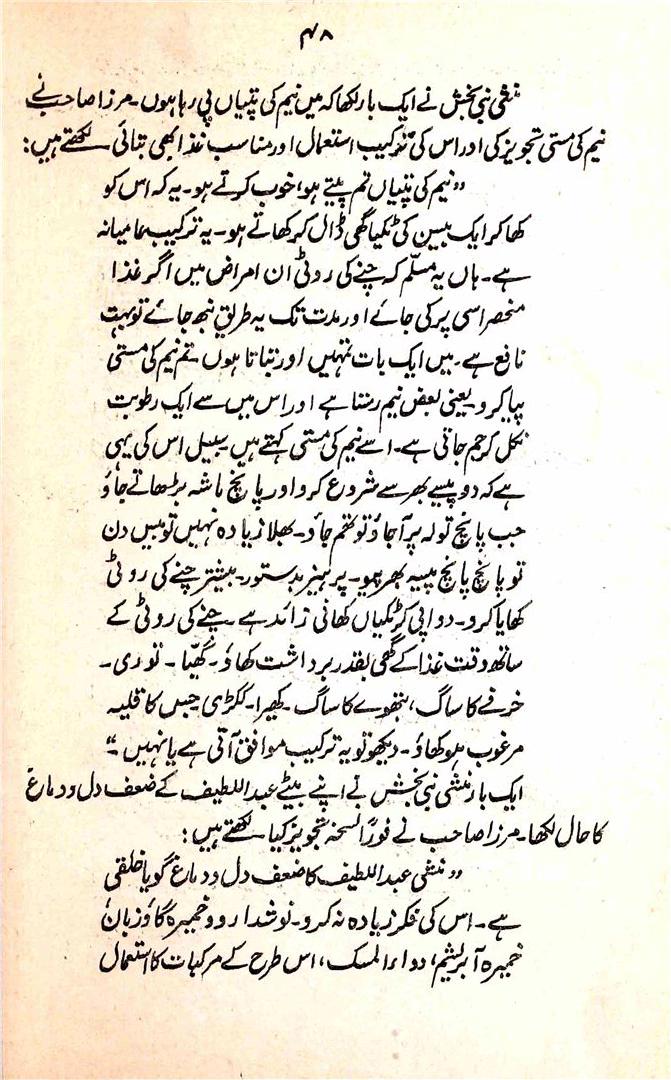 ۴۸
منشی نبی بخش نے ایک بار لکھا کہ میں نیم کی پتیاں پی رہا ہوں۔ مرزا صاحب نے
نیم کی مستی تجویز کی اور اس کی ترکیب استعمال اور مناسب غذا بھی بتائی۔ لکھتے ہیں:
"نیم کی پتیاں تم پیتے ہو، خوب کرتے ہو۔ یہ کہ اس کو
کھا کر ایک بیسن کی ٹکیا گھی ڈال کر کھاتے ہو۔ یہ ترکیب عامیانہ
ہے۔ ہاں یہ مسلّم کہ چنے کی روٹی ان امراض میں اگر غذا
منحصر اسی پر کی جائے اور مدت تک یہ طریق نبھ جائے تو بہت
نافع ہے۔ میں ایک بات تمہیں اور بتاتا ہوں۔ تم نیم کی مستی
پیا کرو۔ یعنی بعض نیم رستا ہے اور اس میں سے ایک رطوبت
نکل کر جم جاتی ہے۔ اسے نیم کی مستی کہتے ہیں۔ سبیل اس کی یہی
ہے کہ دو پیسے بھر سے شروع کرو اور پانچ ماشہ بڑھاتے جاؤ
جب پانچ تولہ پر آ جاؤ تو تھم جاؤ۔ بھلا زیادہ نہیں تو بیس دن
تو پانچ پانچ پیسہ بھر پیو۔ پرہیز بدستور۔ بیشتر چنے کی روٹی
کھایا کرو۔ دوا پی کر ٹکیاں کھانی زائد ہے۔ چنے کی روٹی کے
ساتھ وقت غذا کے گھی بقدر برداشت کھاؤ۔ گھیّا۔ توری۔
خرفے کا ساگ، بتھوے کا ساگ۔ کھیرا۔ ککڑی جس کا قلیہ
مرغوب ہو کھاؤ۔ دیکھو تو یہ ترکیب موافق آتی ہے یا نہیں۔"
ایک بار منشی نبی بخش نے اپنے بیٹے عبد اللطیف کے ضعف دل و دماغ
کا حال لکھا۔ مرزا صاحب نے فوراً نسخہ تجویز کیا۔ لکھتے ہیں:
"منشی عبد اللطیف کا ضعف دل و دماغ گویا خلقی
ہے۔ اس کی فکر زیادہ نہ کرو۔ نوشدارو و خمیرہ گاؤزبان
خمیرہ آبریشم، دواء المسک، اس طرح کے مرکبات کا استعمال